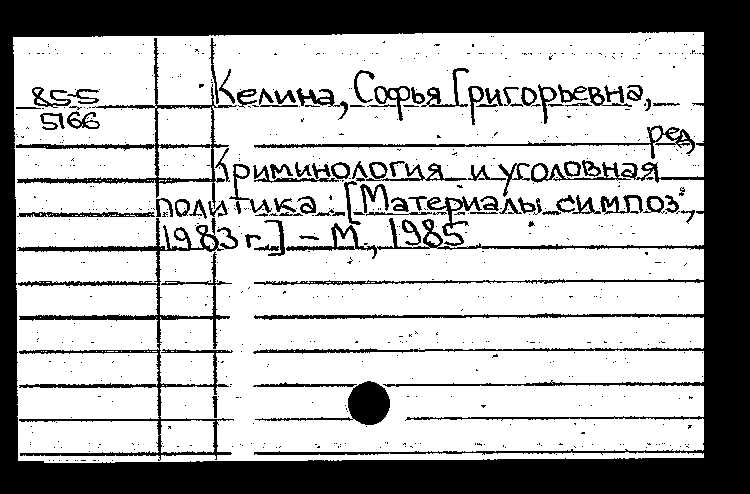 85-5
5166
Келина, Софья Григорьевна,
ред.
Криминология и уголовная
политика : [Материалы симпоз.,
1983 г.] – М., 1985